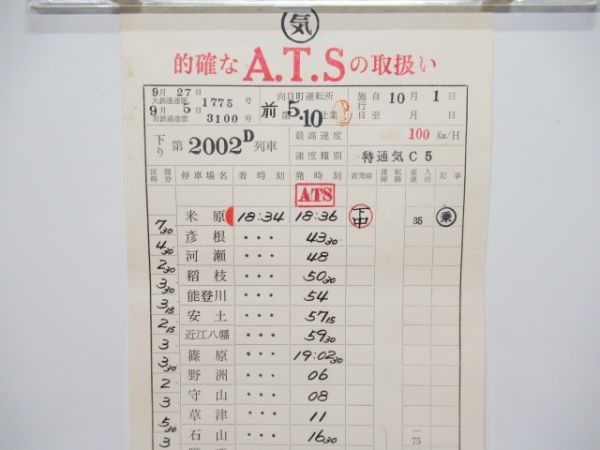 気
的確な A.T.S の取扱い
9月27日
大鉄運達第 1775 号
9月5日
名鉄運達第 3100 号
向日町運転所
前 5.10 仕業
施行 自 10月 1日
至 月 日
下り 第 2002D 列車
最高速度 100 Km/H
速度種別 特通気C5
区間時分 停車場名 着時刻 発時刻 着発線 記事
ATS
米原 18:34 18:36 下中 35 乗
7 30
彦根 ・・・ 43 30
4 30
河瀬 ・・・ 48
2 30
稲枝 ・・・ 50 30
3 30
能登川 ・・・ 54
3 15
安土 ・・・ 57 15
2 15
近江八幡 ・・・ 59 30
3
篠原 ・・・ 19:02 30
3 30
野洲 ・・・ 06
2
守山 ・・・ 08
3
草津 ・・・ 11
5 30
石山 ・・・ 16 30 75
3